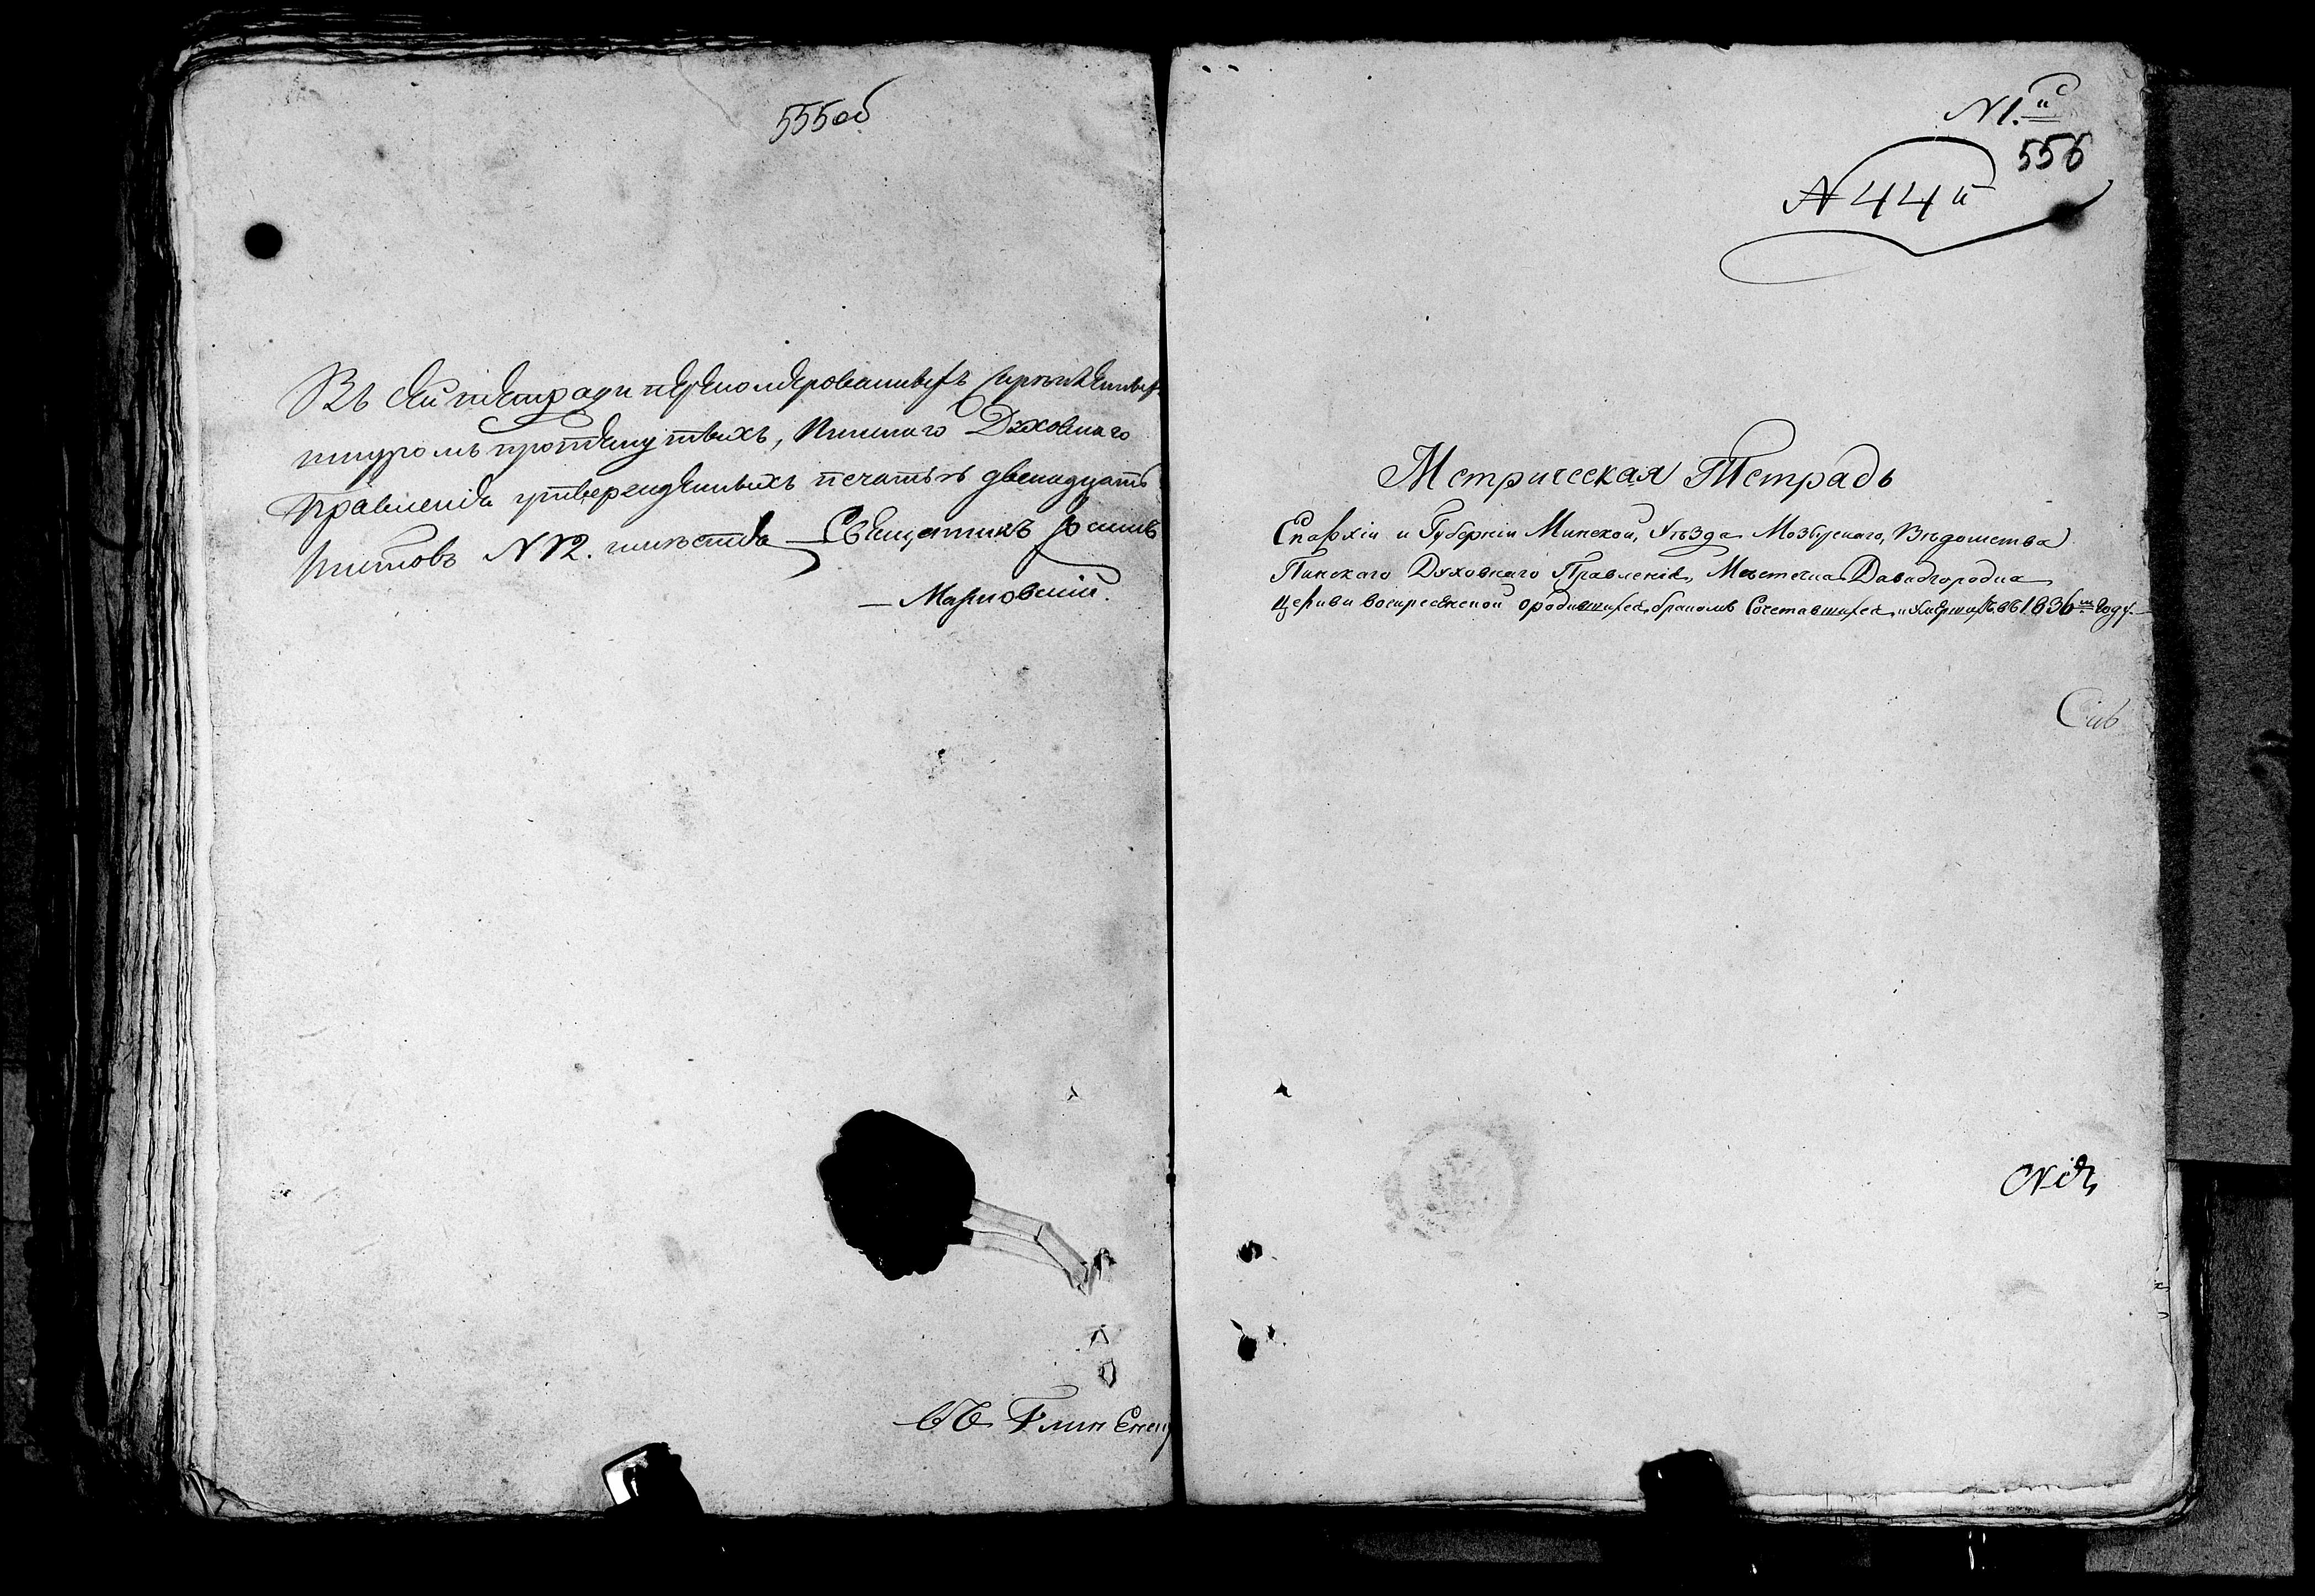 555об
Въ сей тетради перенолерованныхъ скрепленныхъ
шнуромъ протянутыхъ, Пинскаго Духовнаго
Правленія утвержденныхъ печатью двенадцать
листовъ N 12. листовъ — Священникъ
— Марковскій.
N 1.й
556
N 44й
Метрическая Тетрадь
Епархіи и Губерніи Минской, Уѣзда Мозырскаго, Вѣдомства
Пинскаго Духовнаго Правленія, Мѣстечка Давидгородка
Церкви Воскресенской о родившихся, бракомъ Сочетавшихся, и умершихъ въ 1836м году.